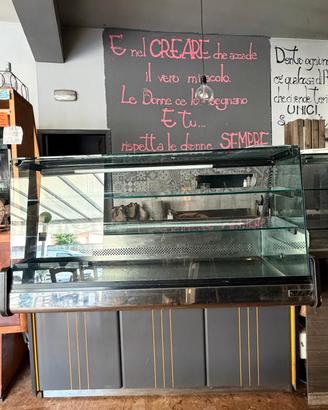 E nel CREARE che accade
il vero miracolo.
Le Donne ce lo insegnano
E tu...
rispetta le donne SEMPRE
Dentro ognuno
che ci rende
UNICI